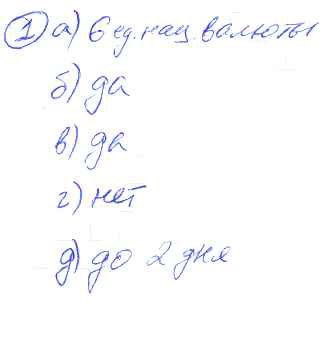 1 а) 6 ед. нац. валюты
б) да
в) да
г) нет
д) до 2 дня